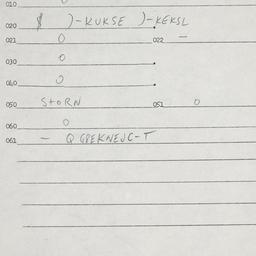 010
020 $ )-KUKSE )-KEKSL
021 0 022 -
030 0
040 0
050 STORN 051 0
060 0
061 - Q GPEKNEJC-T